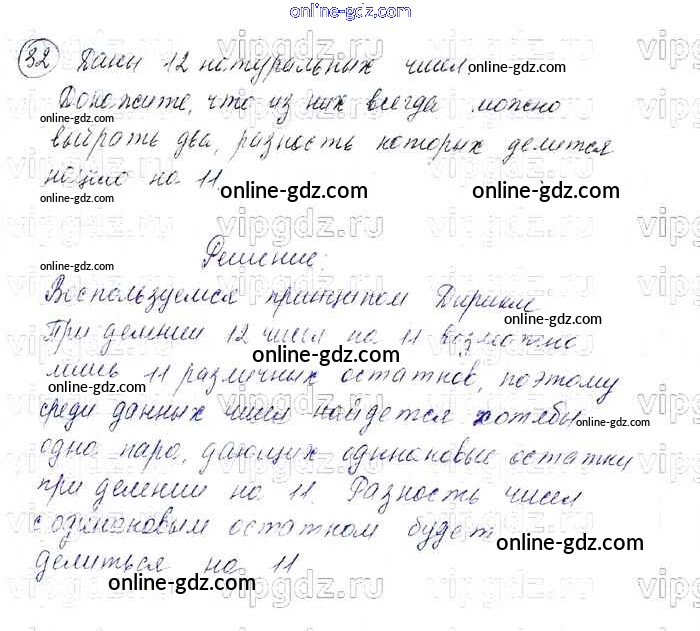 online-gdz.com
32 Даны 12 натуральных чисел online-gdz.com
Докажите, что из них всегда можно
online-gdz.com
выбрать два, разность которых делится
нацело на 11.
online-gdz.com online-gdz.com online-gdz.com
Решение:
online-gdz.com
Воспользуемся принципом Дирихле
online-gdz.com
При делении 12 чисел на 11 возможно
online-gdz.com
лишь 11 различных остатков, поэтому
online-gdz.com
среди данных чисел найдется хотябы
online-gdz.com online-gdz.com
одна пара, дающих одинаковые остатки
при делении на 11 Разность чисел
с одинаковым остатком будет
online-gdz.com
делиться на 11
online-gdz.com online-gdz.com
vipgdz.ru